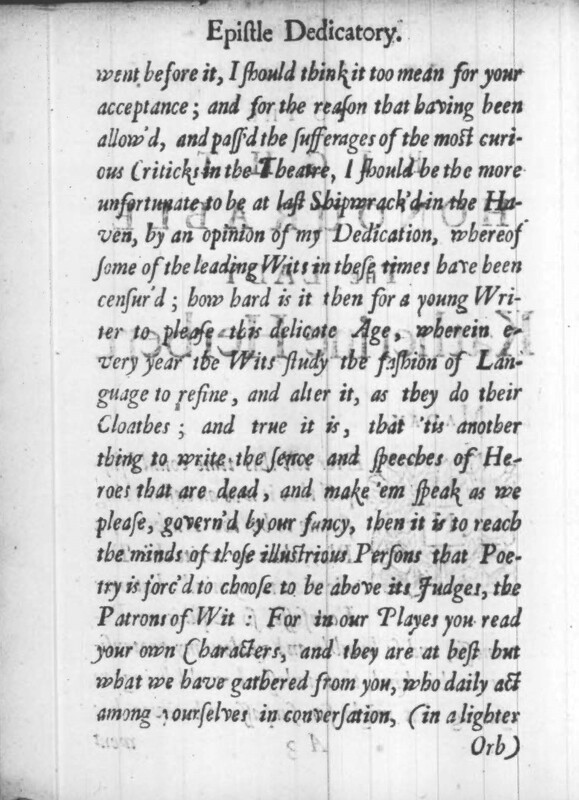 Epiſtle Dedicatory.
went before it, I ſhould think it too mean for your
acceptance; and for the reaſon that having been
allow'd, and paſſ'd the ſufferages of the most curi-
ous Criticks in the Theatre, I ſhould be the more
unfortunate to be at laſt Shipwrack'd in the Ha-
ven, by an opinion of my Dedication, whereof
ſome of the leading Wits in theſe times have been
cenſur'd; how hard is it then for a young Wri-
ter to pleaſe this delicate Age, wherein e-
very year the Wits ſtudy the faſhion of Lan-
guage to refine, and alter it, as they do their
Cloathes; and true it is, that 'tis another
thing to write the ſence and ſpeeches of He-
roes that are dead, and make 'em ſpeak as we
pleaſe, govern'd by our fancy, then it is to reach
the minds of thoſe illuſtrious Perſons that Poe-
try is forc'd to chooſe to be above its Judges, the
Patrons of Wit: For in our Playes you read
your own Characters, and they are at beſt but
what we have gathered from you, who daily act
among yourſelves in converſation, (in a lighter
Orb)